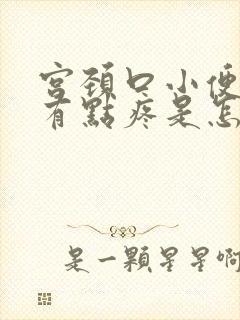 宮頚口小便
有點疼是怎
是一顆星星啊